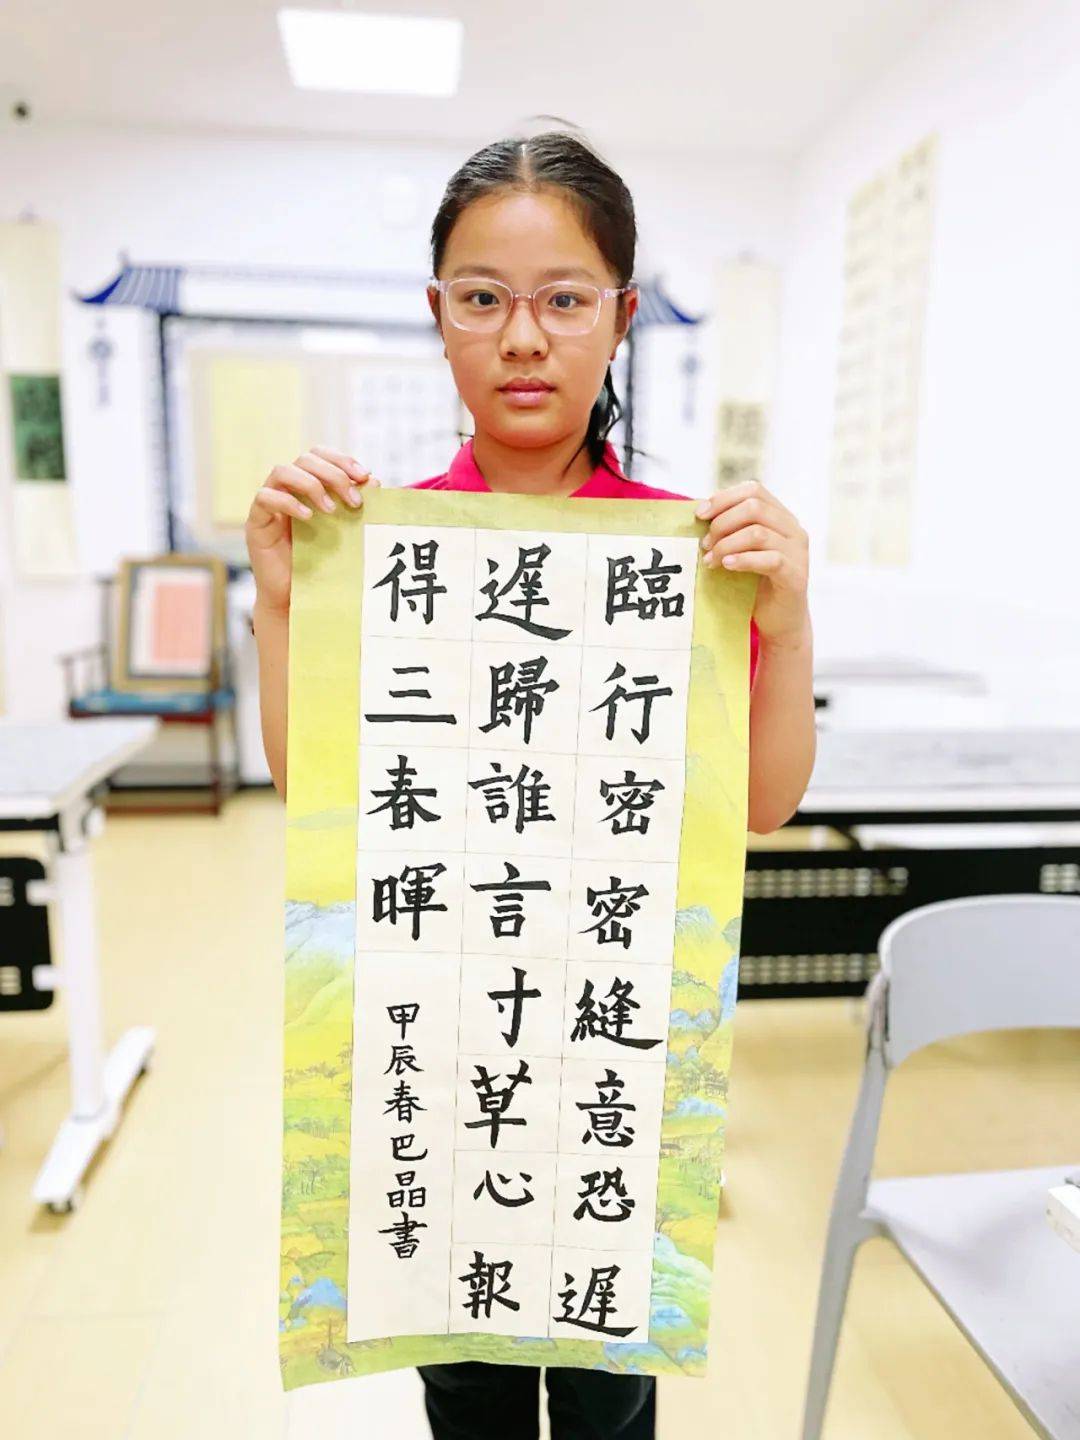 臨行密密縫意恐遲
遲歸誰言寸草心報
得三春暉
甲辰春巴晶書